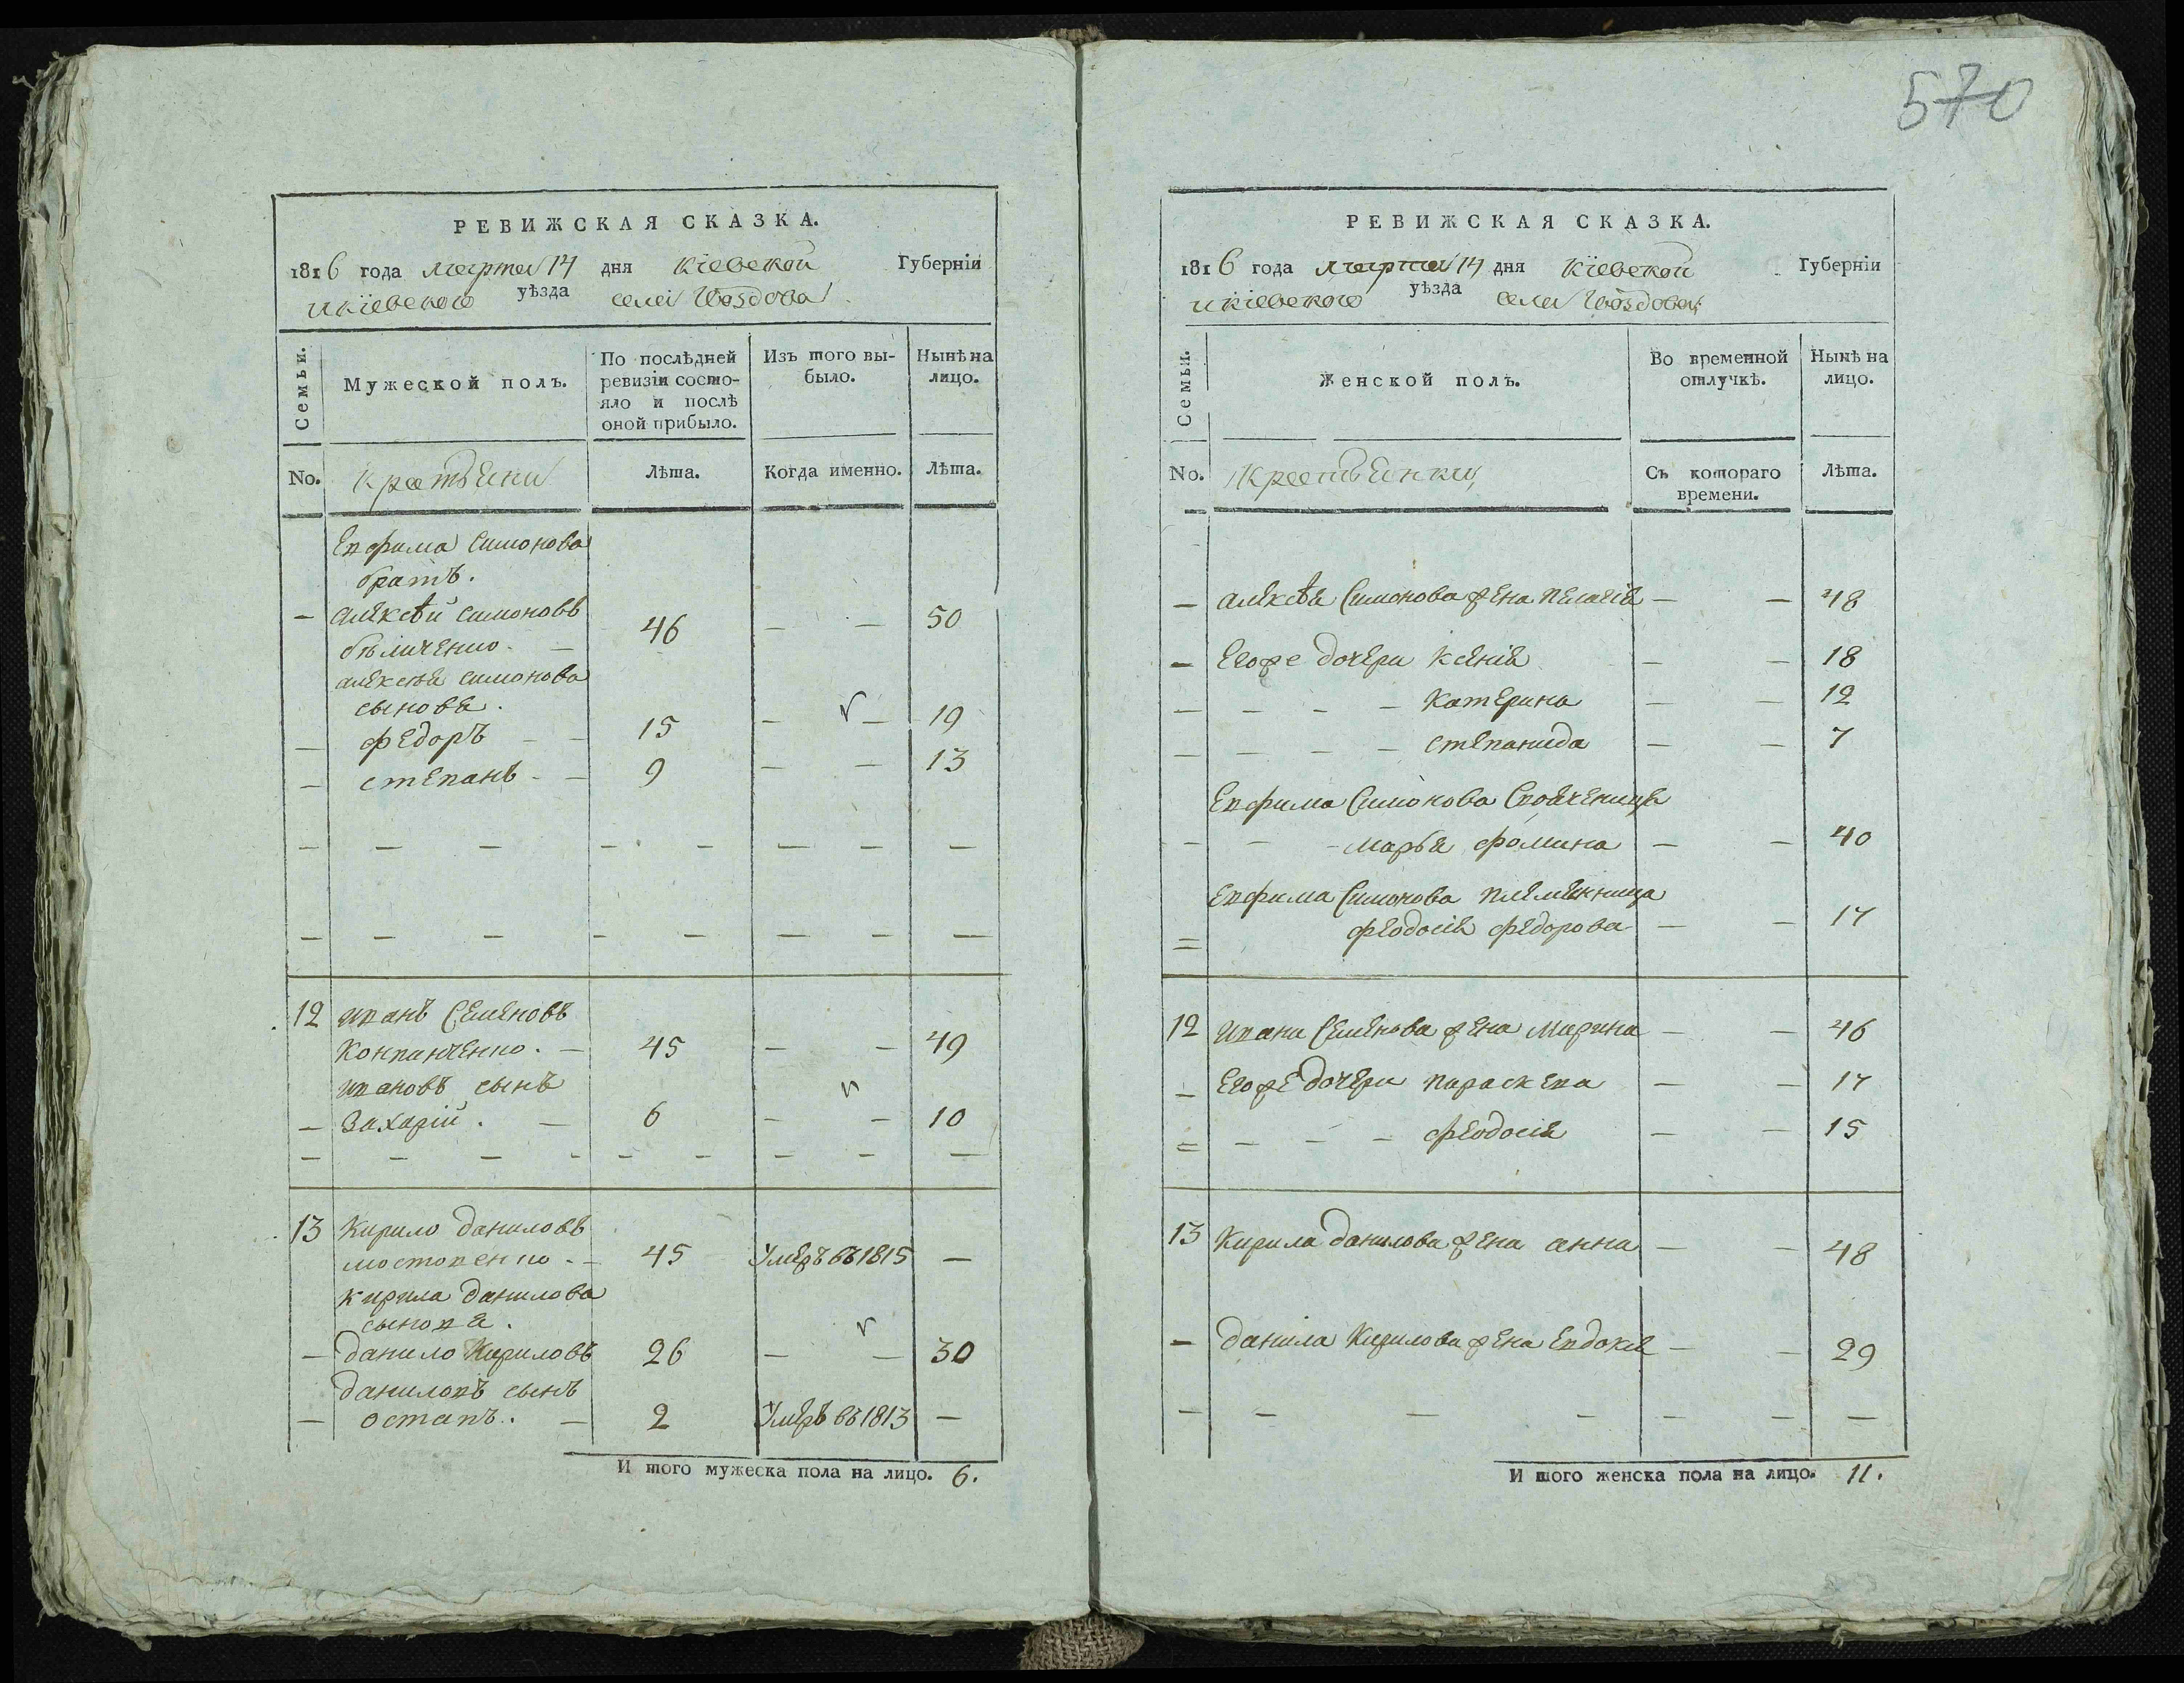 570
РЕВИЖСКАЯ СКАЗКА.
1816 года марта 14 дня Кіевской Губерніи
и кіевского уѣзда села Гвоздова
Семьи.
Мужеской полъ.
По послѣдней
ревизіи состо-
яло и послѣ
оной прибыло.
Изъ того вы-
было.
Нынѣ на
лицо.
No.
Крестьяни
Лѣта.
Когда именно.
Лѣта.
Евфима Симонова
братъ.
— Алексѣй Симоновъ
46 — — 50
Алексѣя Симонова
сыновя.
— Федоръ — — 15 — — 19
— Степанъ — — 9 — — 13
12 Иванъ Семеновъ
Конпанченко. — 45 — — 49
Ивановъ сынъ
— Захарій. — 6 — — 10
13 Кирило Даниловъ
мостовенко. — 45 Умеръ въ 1815 —
Кирила Данилова
сыновя.
— Данило Кириловъ 26 — — 30
Даниловъ сынъ
— Остапъ. — 2 Умеръ въ 1813 —
И того мужеска пола на лицо. 6.
РЕВИЖСКАЯ СКАЗКА.
1816 года марта 14 дня Кіевской Губерніи
и кіевского уѣзда села Гвоздова
Семьи.
Женской полъ.
Во временной
отлучкѣ.
Нынѣ на
лицо.
No.
Крестьянки
Съ котораго
времени.
Лѣта.
— Алексѣя Симонова жена Пелагія — — 48
— Егоже дочери Ксенія — — 18
— — — — Катерина — — 12
— — — — Степанида — — 7
Евфима Симонова Своячениця
— — — Марья Фомина — — 40
Евфима Симонова племянница
Феодосія Федорова — — 17
12 Ивана Семенова жена Марина — — 46
— Егоже дочери Параскева — — 17
— — — Феодосія — — 15
13 Кирила Данилова жена Анна — — 48
— Данила Кирилова жена Евдокія — — 29
И того женска пола на лицо. 11.